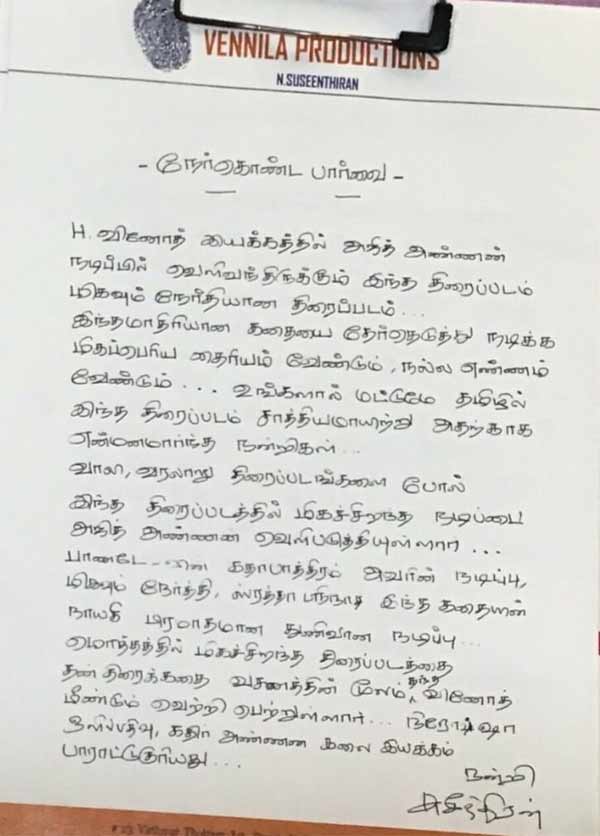 VENNILA PRODUCTIONS
N.SUSEENTHIRAN
- நேர்கொண்ட பார்வை -
H. வினோத் இயக்கத்தில் அஜித் அண்ணன்
நடிப்பில் வெளிவந்திருக்கும் இந்த திரைப்படம்
மிகவும் நேர்த்தியான திரைப்படம் ...
இந்தமாதிரியான கதையை தேர்தெடுத்து நடிக்க
மிகப்பெரிய தைரியம் வேண்டும், நல்ல எண்ணம்
வேண்டும் ... உங்களால் மட்டுமே தமிழில்
இந்த திரைப்படம் சாத்தியமாயிற்று அதற்காக
என்மனமார்ந்த நன்றிகள் ...
வாலி, வரலாறு திரைப்படங்களை போல்
இந்த திரைப்படத்தில் மிகச்சிறந்த நடிப்பை
அஜித் அண்ணன் வெளிபடுத்தியுள்ளார் ...
பாண்டே கதாபாத்திரம் அவரின் நடிப்பு,
மிகவும் நேர்த்தி, ஸ்ரத்தா இந்த கதையின்
நாயகி பிரமாதமான துணிவான நடிப்பு ...
மொத்தத்தில் மிகச்சிறந்த திரைப்படத்தை
தன் திரைக்கதை வசனத்தின் மூலம் தந்த வினோத்
மீண்டும் வெற்றி பெற்றுள்ளார் ... நிரோஷா
ஒளிப்பதிவு, கதிர் அண்ணன் கலை இயக்கம்
பாராட்டுகுரியது ...
நன்றி
சுசீந்திரன்